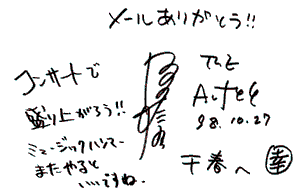 メールありがとう!!
コンサートで
盛り上がろう!!
ミュージックハンマー
またやると
いいですね.
THE
ALFEE
98.10.27
千春へ 幸